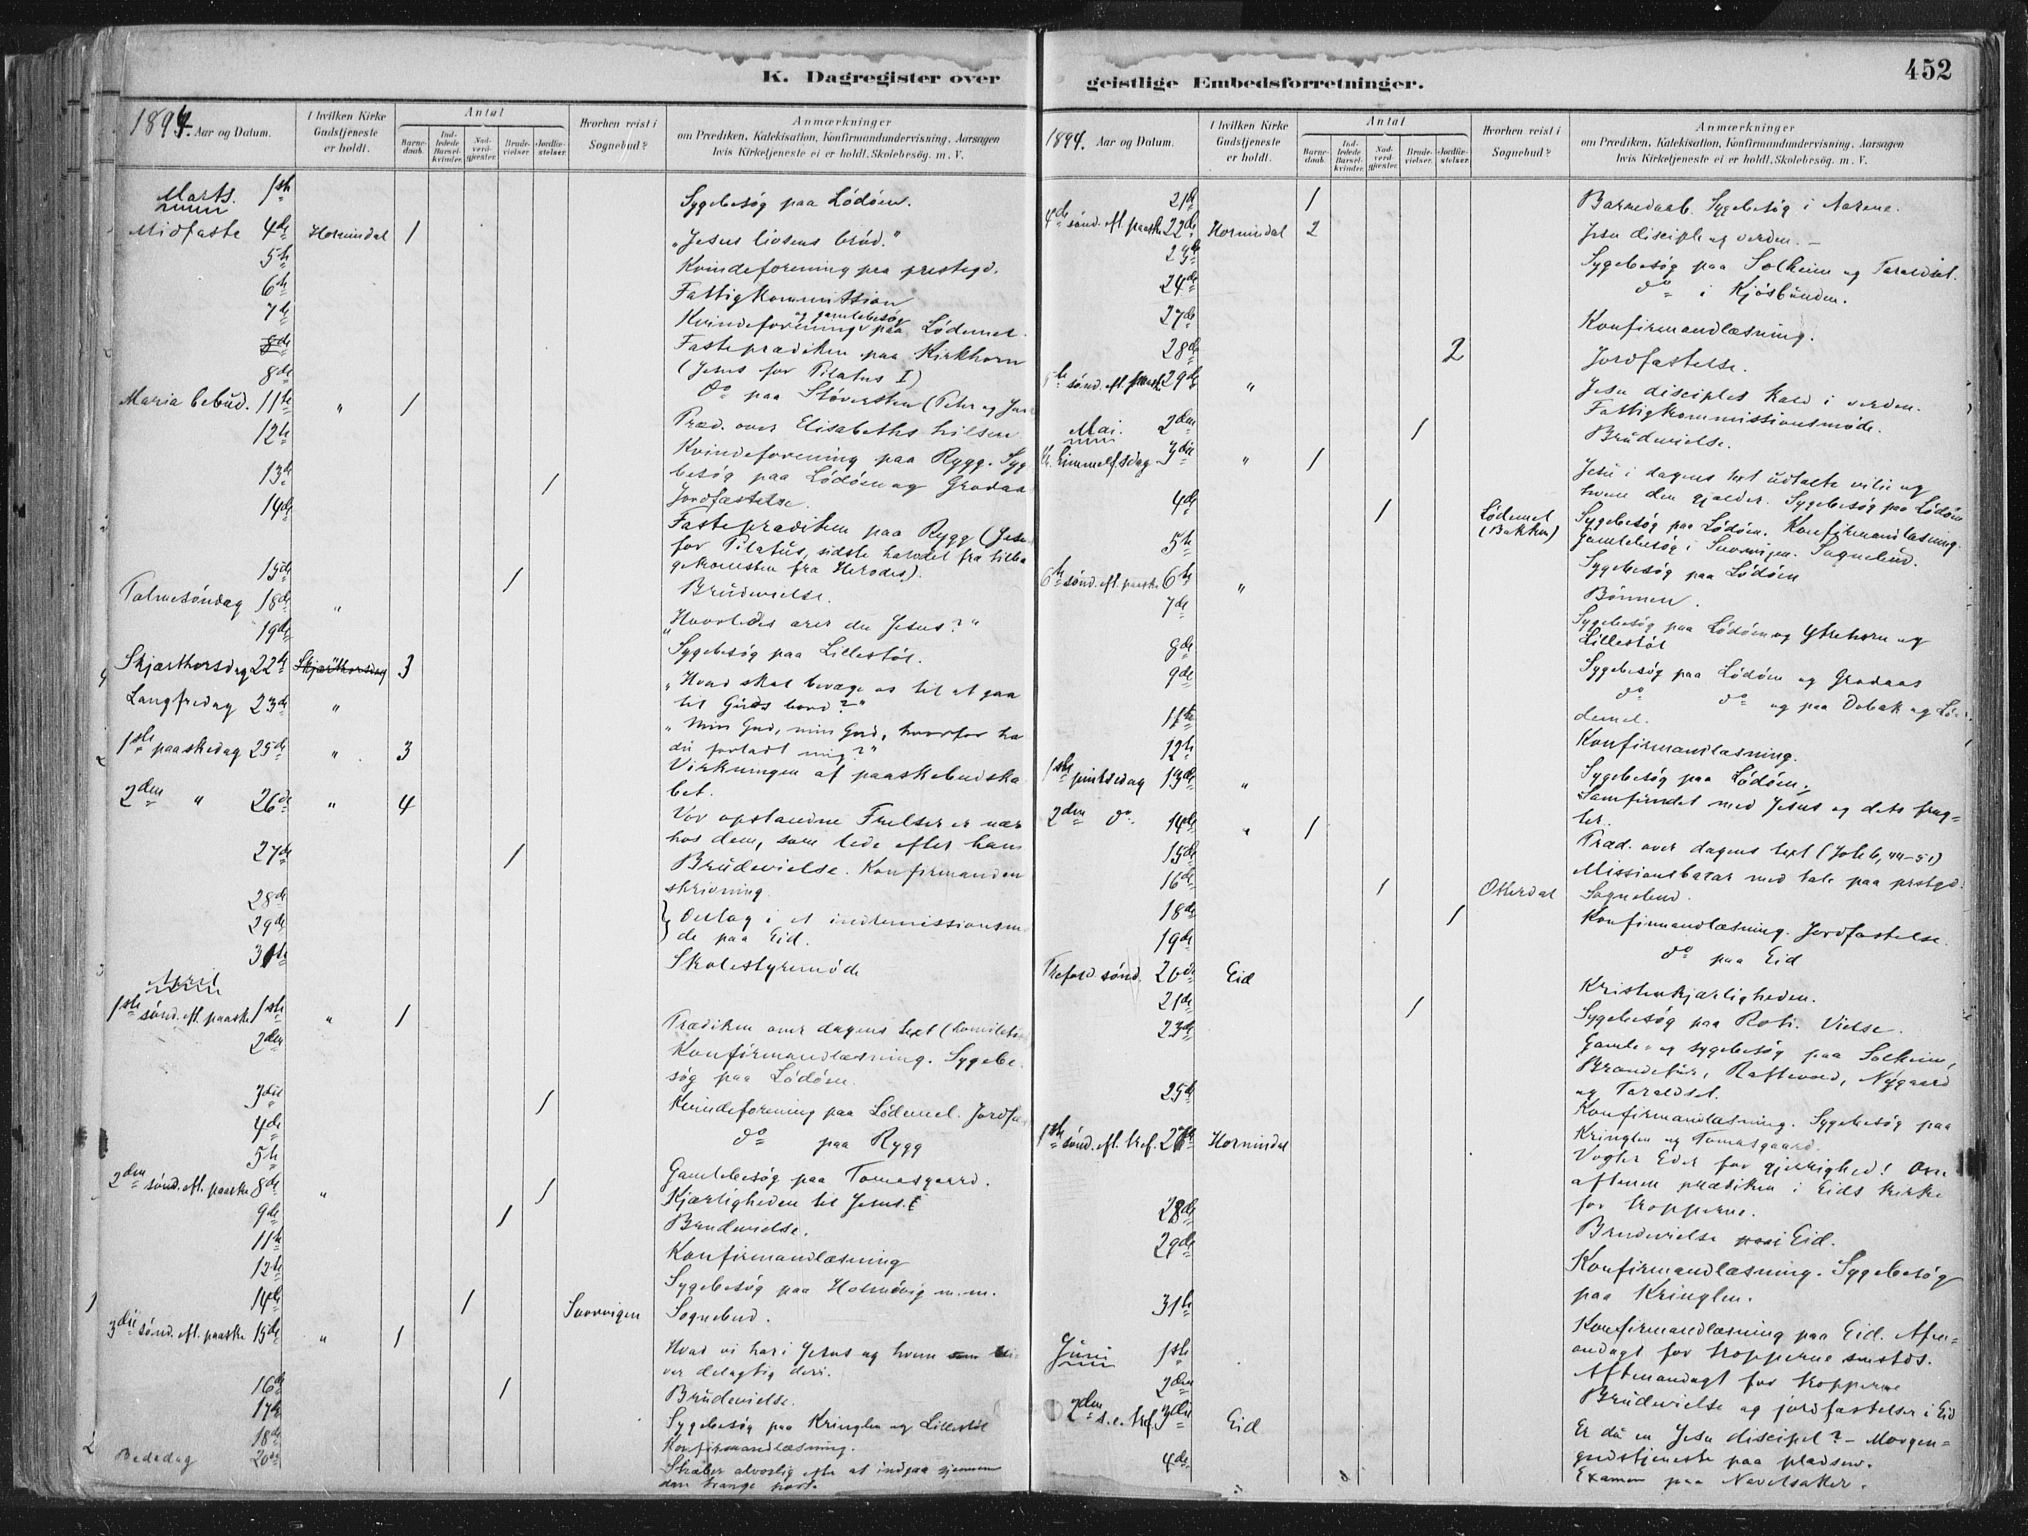 K. Dagregister over
1894. Aar og Datum.
I hvilken Kirke Gudstjeneste er holdt.
Antal
Barnedaab.
Indledede Barselkvinder.
Nadverdgjester.
Brudevielser.
Jordfæstelser.
Hvorhen reist i Sognebud?
Anmærkninger
om Prædiken, Katekisation, Konfirmandundervisning, Aarsagen
hvis Kirketjeneste ei er holdt, Skolebesøg m. V.
Marts. 1ste Sygebesög paa Lödöen.
Midfaste 4de Hornindal 1 „Jesus livsens bröd."
5te Kvindeforening paa prestegd.
6te Fattigkommission
7de Kvindeforening og gamlebesög paa Lödemel.
8de Fasteprædiken paa Kirkhorn
8de (Jesus for Pilatus I)
do paa Stöversten (Peter og
Maria bebud. 11te " 1 Præd. over Elisabeths hilsen
12te Kvindeforening paa Rygg. Syg
13de 1 besög paa Lödöen og Grodaas
14de Jordfæstelse.
Fasteprædiken paa Rygg (Jesu
for Pilatus, sidste halvdel fra tilba
gekomsten fra Herodes).
15de 1 Brudevielse.
Palmesöndag 18de " „Hvorledes ærer du Jesus?"
19de Sygebesög paa Lillestöl.
Skjærthorsdag 22de Skjærthorsdag 3 „Hvad skal bevæge os til at gaa
til Guds bord?"
Langfredag 23de " „Min Gud, min Gud, hvorfor ha
du forladt mig?"
1ste paaskedag 25de " 3 Virkningen af paaskebudska
bet.
2den " 26de " 4 Vor opstandne Frelser er nær
hos dem, som lede efter ham
27de 1 Brudevielse. Konfirmanden
skrivning.
28de
29de Deltog i et indremissionsmö
31te de paa Eid.
Skolestyremöde
April
1ste sönd. ef. paaske 1ste " 1 Prædiken over dagens text
2den Konfirmandlæsning. Sygebe
sög paa Lödöen.
3die 1 Kvindeforening paa Lödemel. Jordfæ
4de do paa Rygg
5te Gamlebesög paa Tomasgaard.
2den sönd. ef. paaske 8de " 1 Kjærligheden til Jesus.
9de 1 Brudevielse.
11te Konfirmandlæsning
12te Sygebesög paa Holmövig m.m.
14de 1 Svorvigen Sognebud.
3die sönd. ef. paaske 15de " 1 Hvad vi har i Jesus og hvem som bli
ver delagtig deri.
16de 1 Brudevielse.
17de Sygebesög paa Kringlen og Lillestöl
18de Konfirmandlæsning.
Bededag 20de Stræber alvorlig efter at indgaa gjennem
den trange port.
geistlige Embedsforretninger.
452
1894. Aar og Datum.
I hvilken Kirke Gudstjeneste er holdt.
Antal
Barnedaab.
Indledede Barselkvinder.
Nadverdgjester.
Brudevielser.
Jordfæstelser.
Hvorhen reist i Sognebud?
Anmærkninger
om Prædiken, Katekisation, Konfirmandundervisning, Aarsagen
hvis Kirketjeneste ei er holdt, Skolebesøg m. V.
21de 1 Barnedaab. Sygebesög i
4de sönd. ef. paaske 22de Hornindal 2 Jesu disciple og verden.
23de Sygebesög paa Solheim og Taraldset.
24de do i Kjösbunden.
27de Konfirmandlæsning.
28de 2 Jordfæstelse.
5te sönd. ef. paaske 29de " Jesu disciples kald i verden.
Mai. 2den Fattigkommissionsmöde.
1 Brudevielse.
Kr. himmelf.dag 3die " 1 Jesu i dagens text udtalte vilie og
hvem den gjælder. Sygebesög paa Lödöen
4de 1 Lödemel (Bakken) Sygebesög paa Lödöen. Konfirmandlæsning.
Gamlebesög i Svorvigen. Sognebud.
5te Sygebesög paa Lödöen
6te sönd. ef. paaske 6te " Bönnen.
7de Sygebesög paa Lödöen og Ytrehorn og
Lillestöl
8de Sygebesög paa Lödöen og Grodaas
9de do do og paa Dobak og Lö-
demel.
11te Konfirmandlæsning.
12te Sygebesög paa Lödöen.
1ste pintsedag 13de " Samfundet med Jesus og dets frug-
ter.
2den do. 14de " 1 Præd. over dagens text (Joh 6, 44-51)
15de Missionsbazar med tale paa prstgd.
16de 1 Otterdal Sognebud.
18de 1 Konfirmandlæsning. Jordfæstelse.
19de do paa Eid
Trefold. sönd. 20de Eid Kristenkjærligheden.
21de 1 Sygebesög paa Roti. Vielse.
23de Gamle- og sygebesög paa Solheim,
Raftevold, Nygaard
og Taraldset.
25te Konfirmandlæsning. Sygebesög paa
Kringlen og Tomasgaard.
1ste sönd. ef. tref. 27de Hornindal Vogter Eder for gjerrighed! Om
aftenen prædiken i Eids kirke
for tropperne.
28de Brudevielse paa i Eid.
29de Konfirmandlæsning. Sygebesög
paa Kringlen.
31te Konfirmandlæsning paa Eid. Aften-
andagt for tropperne smstds.
Juni 1ste Aftenandagt for tropperne
2den Brudevielse og jordfæstelser i Eid
2den s. e. tref. 3die Eid Er du en Jesu discipel? - Morgen-
gudstjeneste paa pladsen.
4de Examen paa Navelsaker.